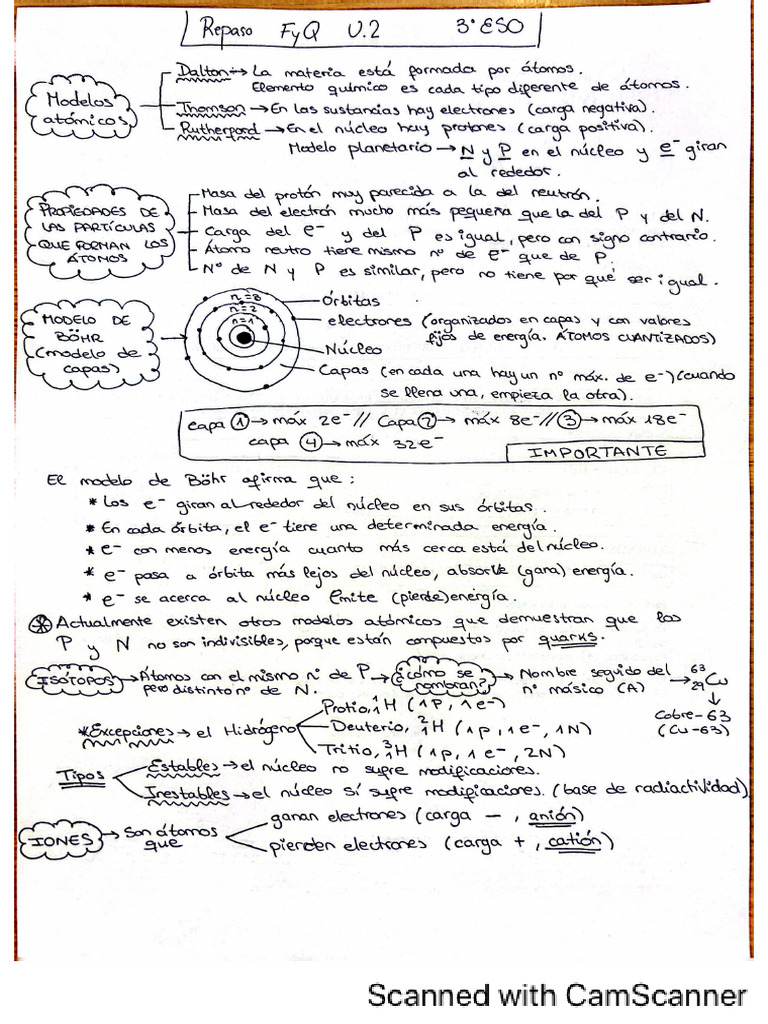 Repaso FyQ U.2 3º ESO
Modelos atómicos
Dalton → La materia está formada por átomos.
Elemento químico es cada tipo diferente de átomos.
Thomson → En las sustancias hay electrones (carga negativa).
Rutherford → En el núcleo hay protones (carga positiva).
Modelo planetario → N y P en el núcleo y e⁻ giran
al rededor.
PROPIEDADES DE
LAS PARTÍCULAS
QUE FORMAN LOS
ÁTOMOS
Masa del protón muy parecida a la del neutrón.
Masa del electrón mucho más pequeña que la del P y del N.
Carga del e⁻ y del P es igual, pero con signo contrario.
Átomo neutro tiene mismo nº de E⁻ que de P.
Nº de N y P es similar, pero no tiene por qué ser igual.
MODELO DE
BÖHR
(modelo de
capas)
n=3
n=2
n=1
Órbitas
electrones (organizados en capas y con valores
fijos de energía. ÁTOMOS CUANTIZADOS)
Núcleo
Capas (en cada una hay un nº máx. de e⁻) (cuando
se llena una, empieza la otra).
capa ① → máx 2e⁻ // Capa ② → máx 8e⁻ // ③ → máx 18e⁻
capa ④ → máx 32e⁻
IMPORTANTE
El modelo de Böhr afirma que:
* Los e⁻ giran al rededor del núcleo en sus órbitas.
* En cada órbita, el e⁻ tiene una determinada energía.
* e⁻ con menos energía cuanto más cerca está del núcleo.
* e⁻ pasa a órbita más lejos del núcleo, absorve (gana) energía.
* e⁻ se acerca al núcleo Emite (pierde) energía.
* Actualmente existen otros modelos atómicos que demuestran que los
P y N no son indivisibles, porque están compuestos por quarks.
ISÓTOPOS → Átomos con el mismo nº de P → ¿cómo se nombran? → Nombre seguido del → ⁶³₂₉Cu
pero distinto nº de N. nº másico (A)
Cobre-63
(Cu-63)
*Excepciones → el Hidrógeno
Protio, ¹H (1P, 1e⁻)
Deuterio, ²₁H (1p, 1e⁻, 1N)
Tritio, ³₁H (1p, 1e⁻, 2N)
Tipos
Estables → el núcleo no sufre modificaciones.
Inestables → el núcleo sí sufre modificaciones. (base de radiactividad)
IONES → Son átomos
que
ganan electrones (carga -, anión)
pierden electrones (carga +, catión)
Scanned with CamScanner